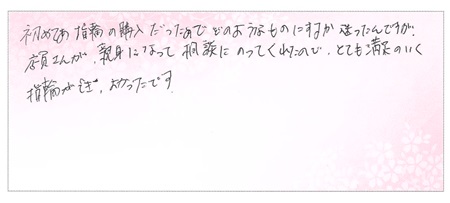 初めての指輪の購入だったのでどのようなものにするか迷ったんですが、
店員さんが、親身になって相談にのってくれたので、とても満足のいく
指輪ができ、よかったです